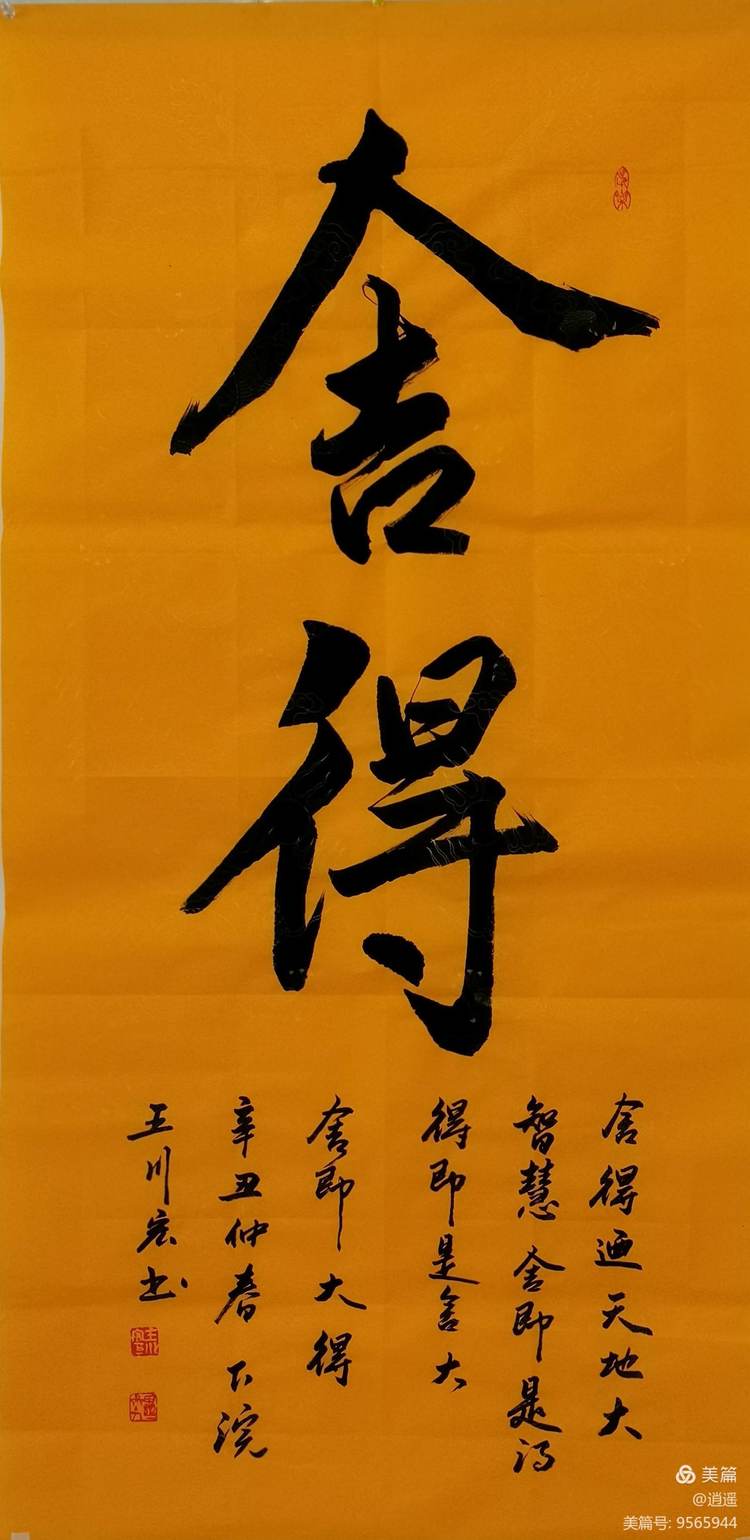 舍得
舍得迺天地大
智慧舍即是得
得即是舍大
舍即大得
辛丑仲春下浣
王川宏书
美篇
@逍遥
美篇号: 9565944